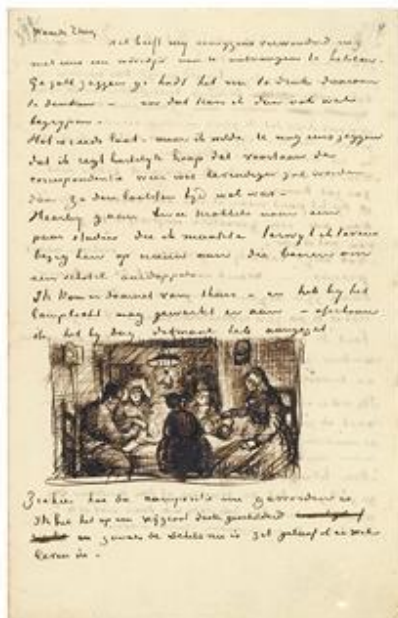 Waarde Theo,
Het heeft mij eenigzins verwonderd nog
niet eens een woordje van U ontvangen te hebben.
Ge zult zeggen ge hadt het veel te druk daaraan
te denken – en dat kan ik dan ook wel
begrijpen.
Het is reeds laat – maar ik wilde U nog eens zeggen
dat ik regt hartelijk hoop dat voortaan de
correspondentie weer wat levendiger zal worden
dan zij den laatsten tijd wel was –
Hierbij gaan twee krabbels naar een
paar studies die ik maakte terwijl ik tevens
bezig ben op nieuw aan die boeren om
een schotel aardappels.
Ik kom er daarnet van thuis – en heb bij het
lamplicht nog gewerkt er aan – ofschoon
ik het bij dag ditmaal heb aangezet
Ziehier hoe de compositie nu geworden is.
Ik heb het op een vrij groot doek geschilderd
en zooals de schets nu is zit geloof ik er wel
leven in –